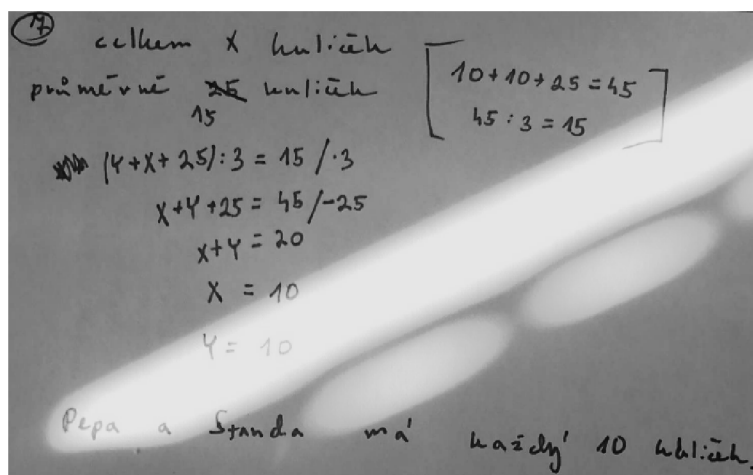 17
celkem x kuliček
průměrně 15 kuliček
[10+10+25=45
45:3=15]
(Y+X+25):3 = 15 /·3
X+Y+25 = 45 /-25
X+Y = 20
X = 10
Y = 10
Pepa a Standa má každý 10 kuliček